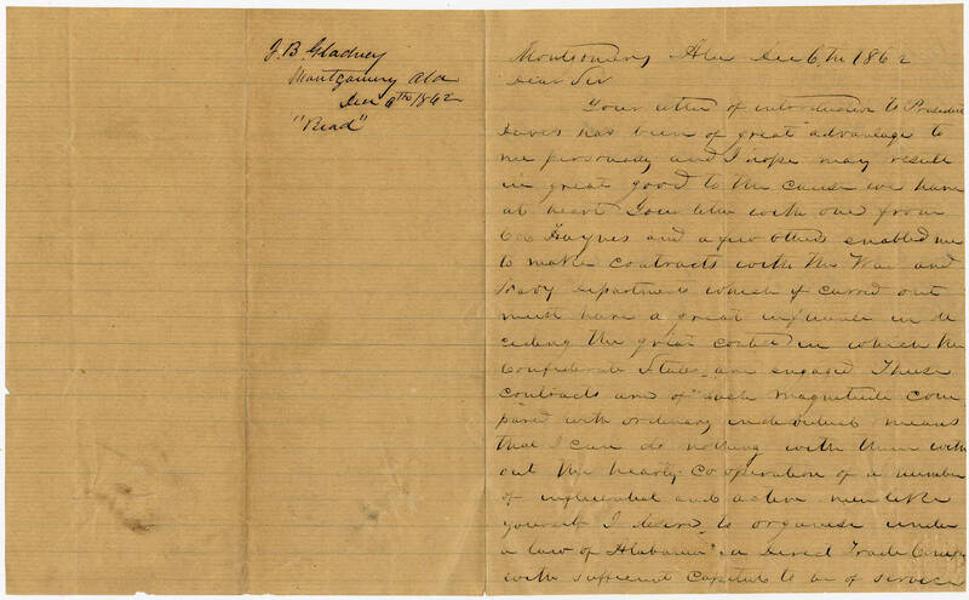 J. B. Gladney
Montgomery Ala
Dec 6th 1862
"Read"
Montgomery Ala Dec 6th 1862
Dear Sir
Your letter of introduction to President
Davis has been of great advantage to
me personally and I hope may result
in great good to the cause we have
at heart Your letter with one from
Col Haynes and a few others enabled me
to make contracts with the War and
Navy Departments which if carried out
must have a great influence in de
ciding the great contest in which the
Confederate States are engaged These
contracts are of such magnitude com
pared with ordinary individuals means
that I can do nothing with them with
out the hearty co operation of a number
of influential and active men like
yourself I desire to organise under
a law of Alabama a Direct Trade Compy
with sufficient Capital to be of service